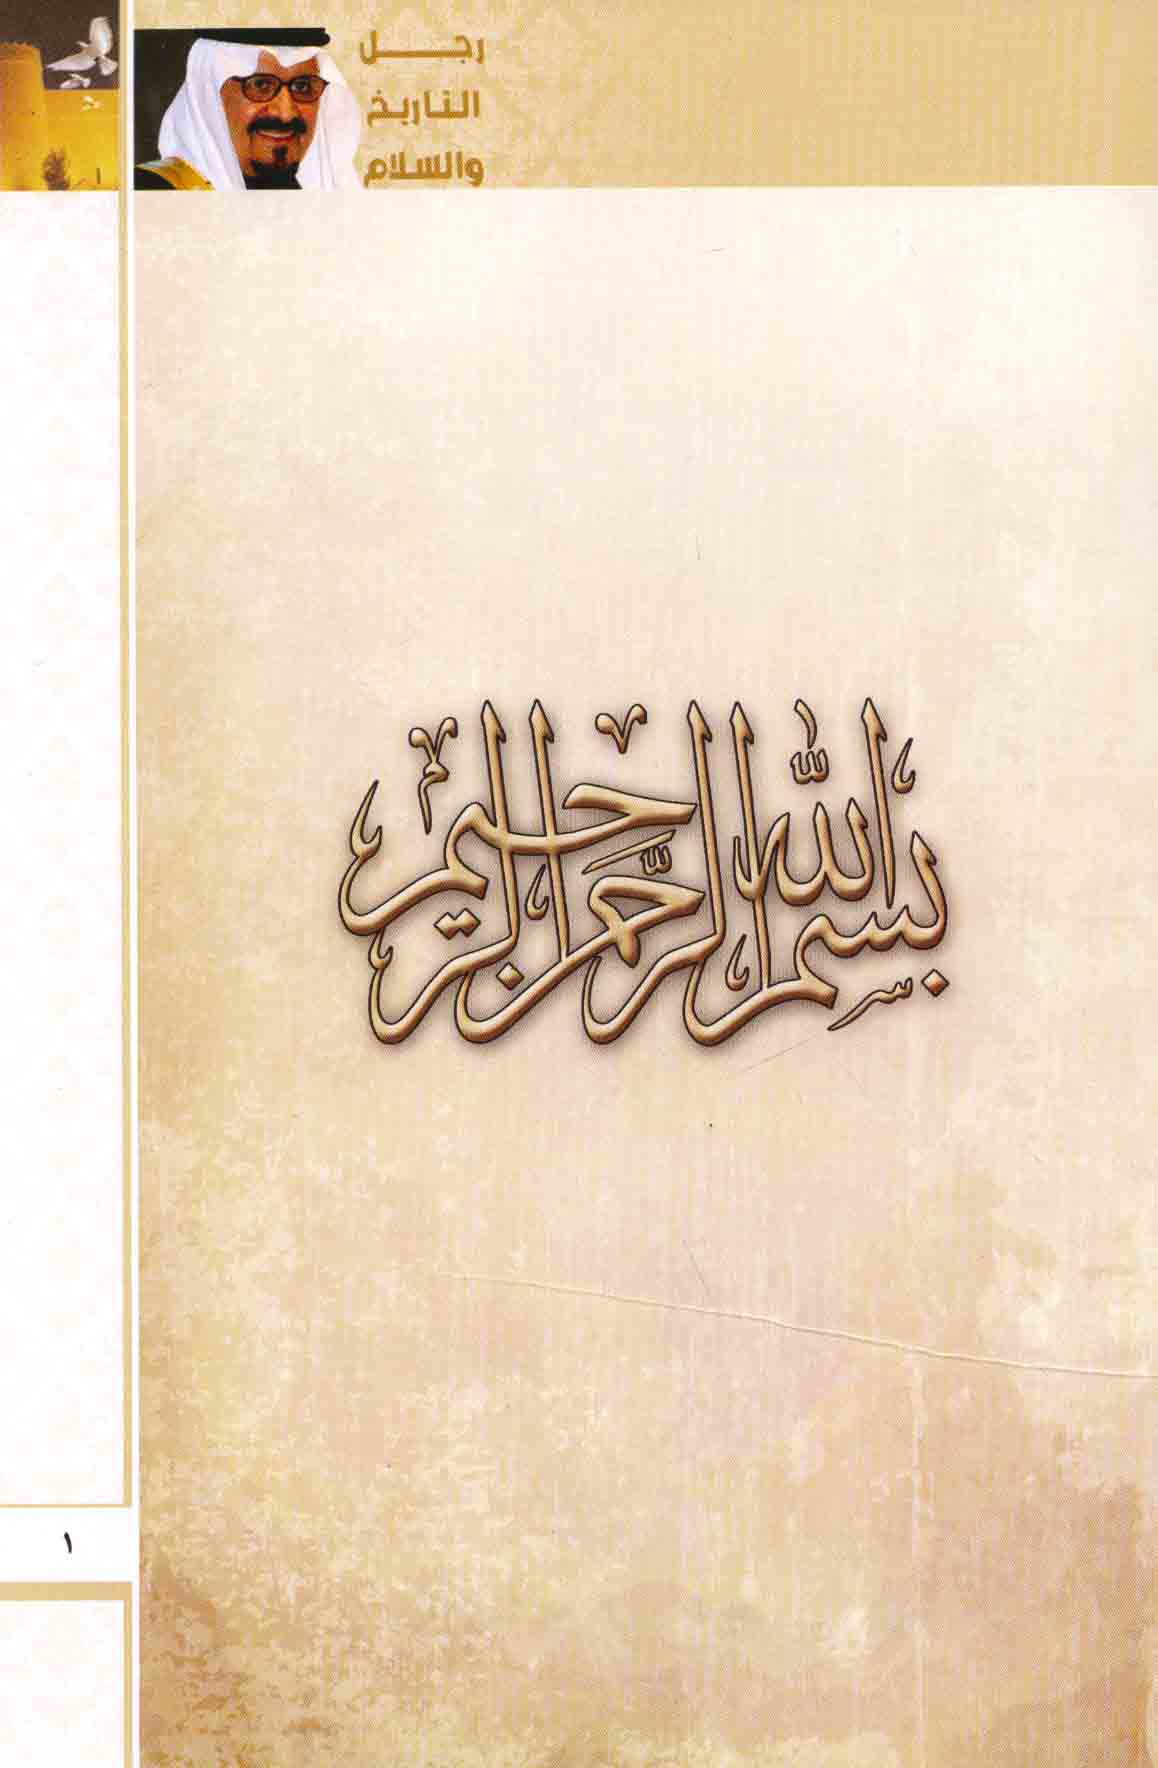 رجل
التاريخ
والسلام
بسم الله الرحمن الرحيم
١